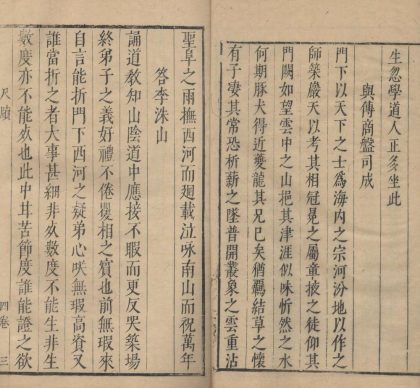 生忽學道人正多坐此
與傅商盤司成
門下以天下之士爲海内之宗河汾地以作之
師築嚴天以考其相冠冕之屬童披之徒仰其
門闕如望雲中之山挹其津涯似咏忻然之水
何期豚犬得近夔龍其兄已矣猶羈結草之懷
有子凄其常恐析薪之墜普開叢象之雲重沾
聖阜之雨撫西河而廻載泣咏南山而祝萬年
答李洙山
誦道教知山陰道中應接不暇而更反哭築場
終弟子之義好禮不倦矍相之賓也前無瑕來
自言能折門下西河之疑弟心咲無瑕高資又
誰當折之者大事甚細非㸒數度不能生非生
數度亦不能㸒也此中耳苦節度誰能證之欲
尺牘 四卷 三